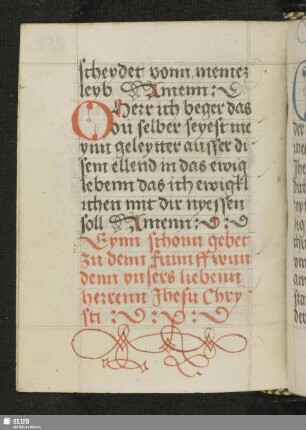 scheydet vonn meinez
leyb Amenn :
O Herr ich beger das
Du selber seyest me
ynn geleytter ausser di
sem ellend in das ewig
lebenn das ich ewigkl
ichen mit dir nyessen
soll Amenn : :
Eynn schonn gebet
zu denn funnff wun
denn vnsers liebenn
herrenn Jhesu Chry
sti : : :
SLUB